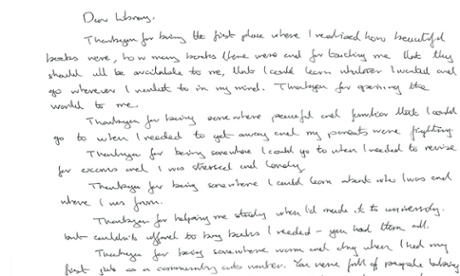 Dear Library,
Thankyou for being the first place where I realised how beautiful
books were, how many books there were and for teaching me that they
should all be available to me, that I could learn whatever I wanted and
go wherever I wanted to in my mind. Thankyou for opening the
world to me.
Thankyou for being somewhere peaceful and familiar that I could
go to when I needed to get away and my parents were fighting
Thankyou for being somewhere I could go to when I needed to revise
for exams and I was stressed and lonely.
Thankyou for being somewhere I could learn about who I was and
where I was from.
Thankyou for helping me study when I'd made it to university.
but couldn't afford to buy books I needed - you had them all.
Thankyou for being somewhere warm and dry when I had my
first job as a community arts worker. You were full of people